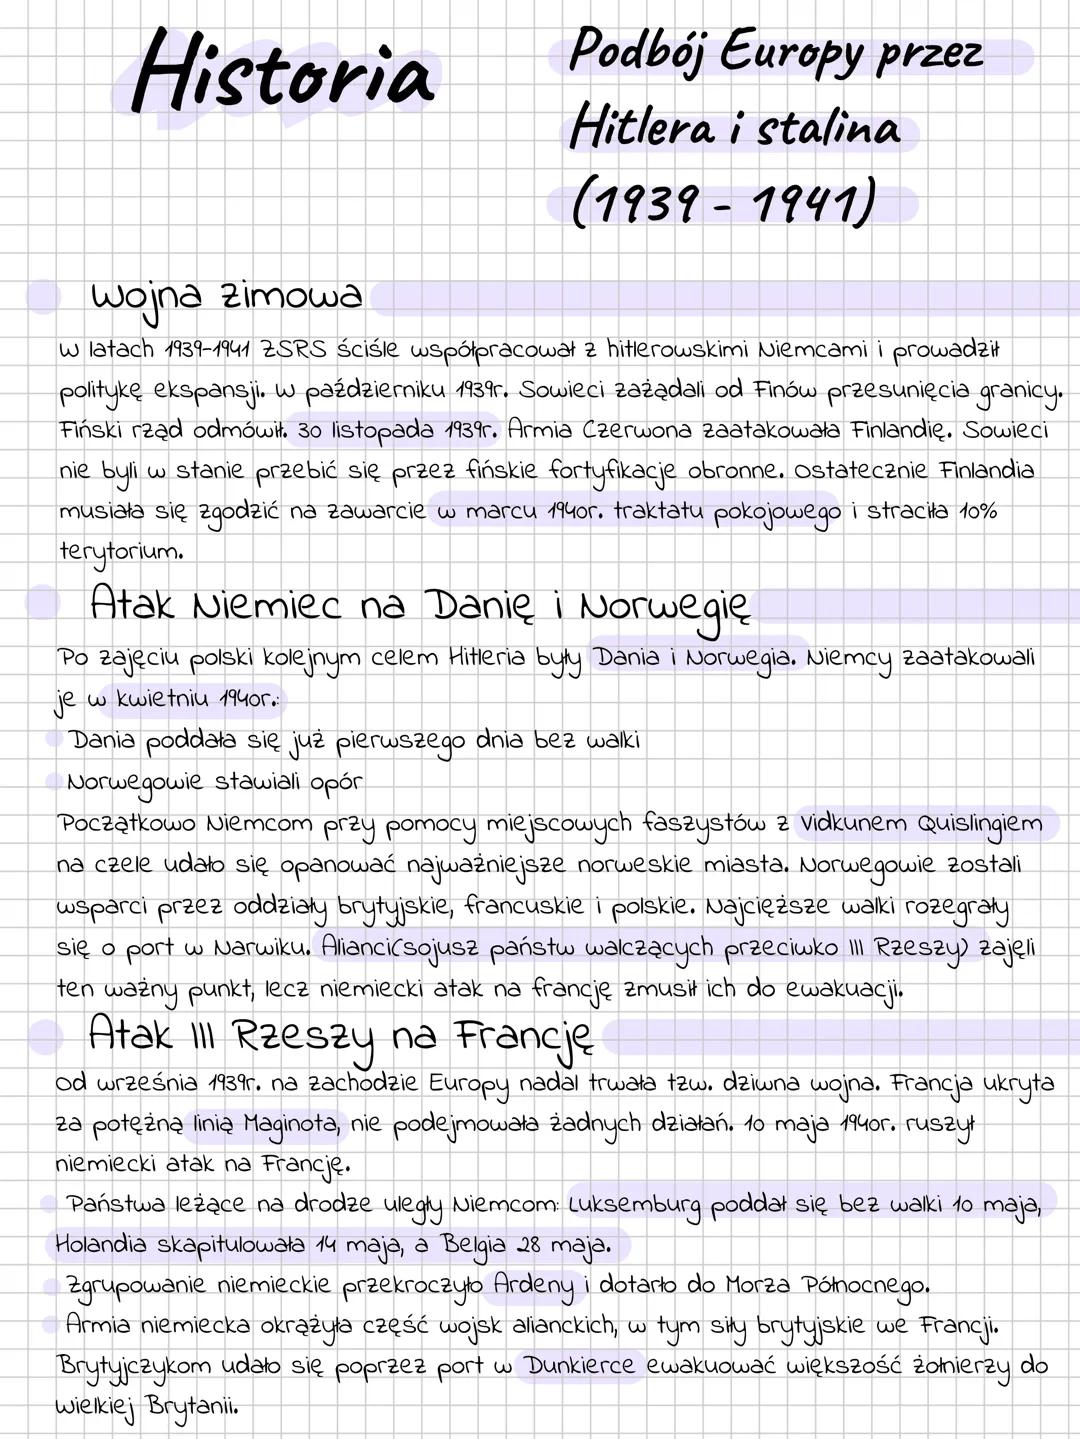 Historia
Podbój Europy przez
Hitlera i stalina
(1939 - 1941)
Wojna zimowa
W latach 1939-1941 ZSRS ściśle współpracował z hitlerowskimi Niemcami i prowadził
politykę ekspansji. W październiku 1939r. Sowieci zażądali od Finów przesunięcia granicy.
Fiński rząd odmówił. 30 listopada 1939r. Armia Czerwona zaatakowała Finlandię. Sowieci
nie byli w stanie przebić się przez fińskie fortyfikacje obronne. Ostatecznie Finlandia
musiała się zgodzić na zawarcie w marcu 1940r. traktatu pokojowego i straciła 10%
terytorium.
Atak Niemiec na Danię i Norwegię
Po zajęciu polski kolejnym celem Hitleria były Dania i Norwegia. Niemcy zaatakowali
je w kwietniu 1940r.:
Dania poddała się już pierwszego dnia bez walki
Norwegowie stawiali opór
Początkowo Niemcom przy pomocy miejscowych faszystów z Vidkunem Quislingiem
na czele udało się opanować najważniejsze norweskie miasta. Norwegowie zostali
wsparci przez oddziały brytyjskie, francuskie i polskie. Najcięższe walki rozegrały
się o port w Narwiku. Alianci(sojusz państw walczących przeciwko III Rzeszy) zajęli
ten ważny punkt, lecz niemiecki atak na francję zmusił ich do ewakuacji.
Atak III Rzeszy na Francję
Od września 1939r. na zachodzie Europy nadal trwała tzw. dziwna wojna. Francja ukryta
za potężną linią Maginota, nie podejmowała żadnych działań. 10 maja 1940r. ruszył
niemiecki atak na Francję.
Państwa leżące na drodze uległy Niemcom: Luksemburg poddał się bez walki 10 maja,
Holandia skapitulowała 14 maja, a Belgia 28 maja.
Zgrupowanie niemieckie przekroczyło Ardeny i dotarło do Morza Północnego.
Armia niemiecka okrążyła część wojsk alianckich, w tym siły brytyjskie we Francji.
Brytyjczykom udało się poprzez port w Dunkierce ewakuować większość żołnierzy do
Wielkiej Brytanii.